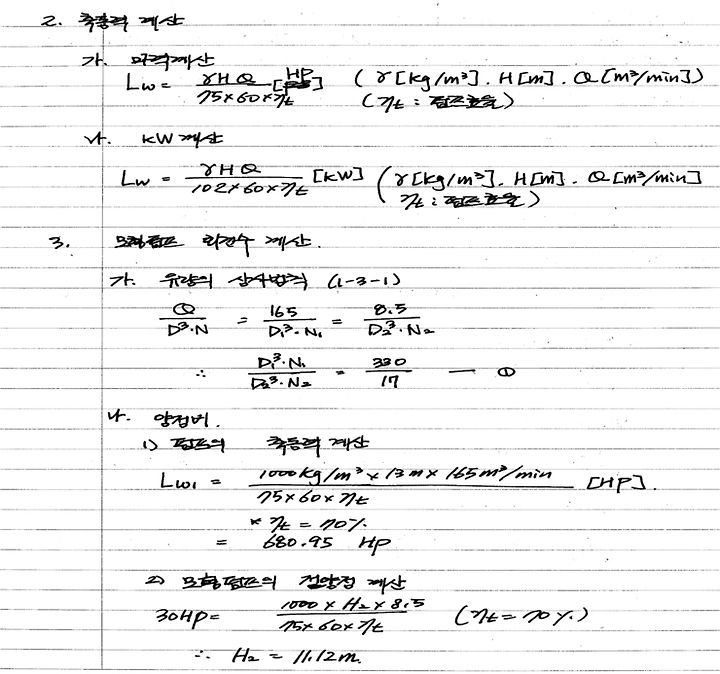 2. 축동력 계산
가. 마력계산
Lw = γHQ / 75×60×ηt [HP] (γ[kg/m³]. H[m]. Q[m³/min])
(ηt : 펌프효율)
나. kW 계산
Lw = γHQ / 102×60×ηt [kW] (γ[kg/m³]. H[m]. Q[m³/min]
ηt : 펌프효율)
3. 모형펌프 회전수 계산.
가. 유량의 상사법칙 (1-3-1)
Q / D³·N = 165 / D₁³·N₁ = 8.5 / D₂³·N₂
∴ D₁³·N₁ / D₂³·N₂ = 330 / 17 — ①
나. 양정비.
1) 펌프의 축동력 계산
Lw1 = 1000kg/m³ × 13m × 165m³/min / 75×60×ηt [HP].
* ηt = 70%.
= 680.95 HP
2) 모형펌프의 전양정 계산
30HP = 1000 × H₂ × 8.5 / 75×60×ηt (ηt = 70%.)
∴ H₂ = 11.12m.